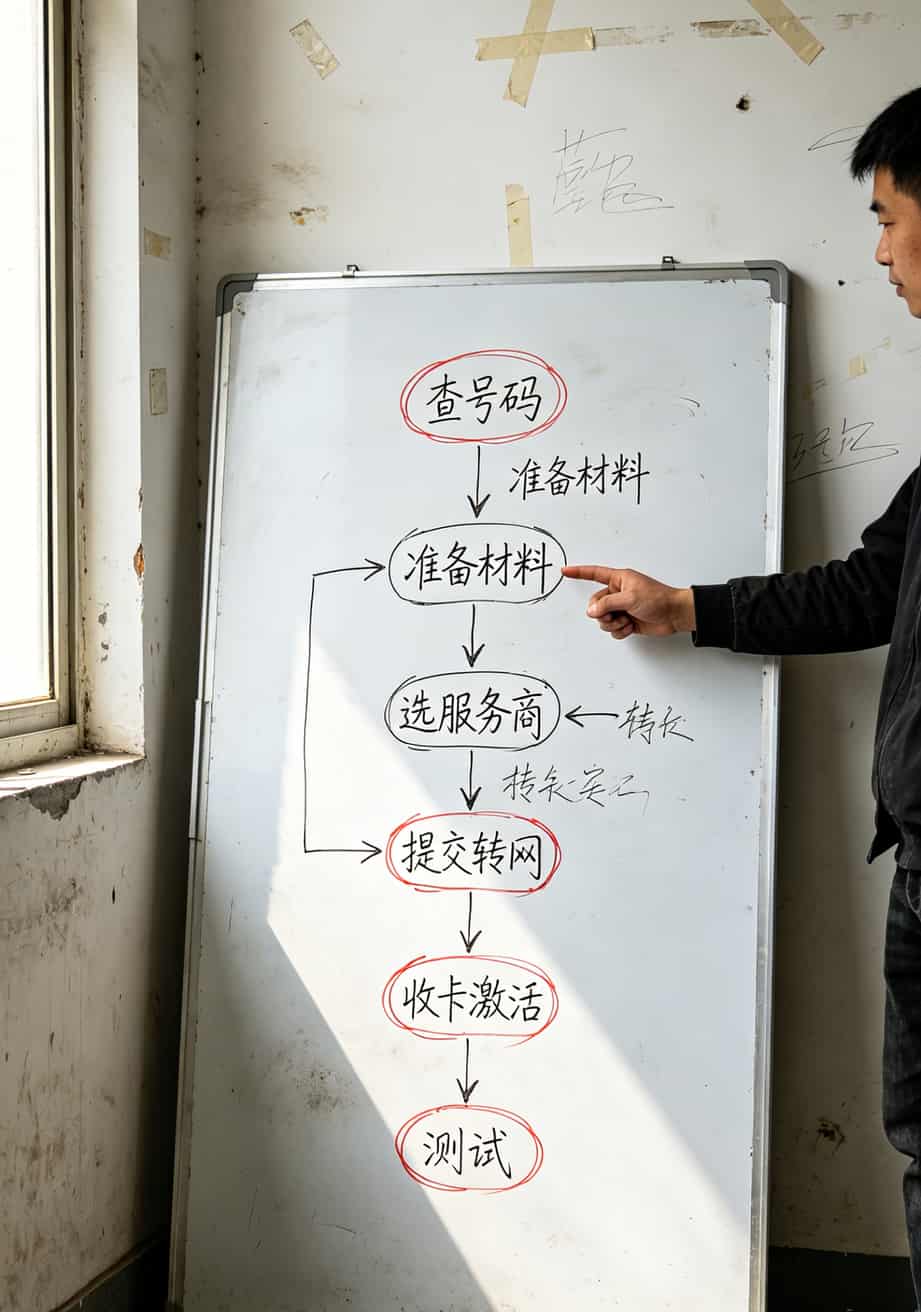 查号码
准备材料
准备材料
选服务商
提交转网
收卡激活
测试